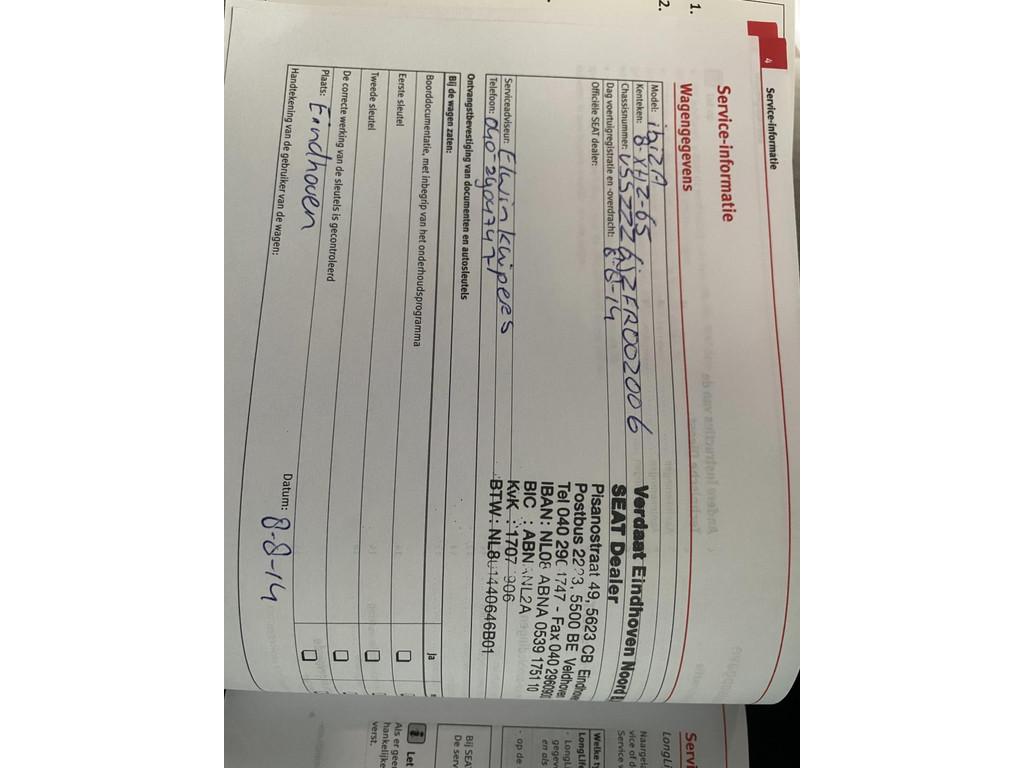 4
Service-informatie
1.
2.
Service-informatie
Wagengegevens
Model: ibiZA
Kenteken: 8-XHZ-65
Chassisnummer: VSSZZZ6JZER002006
Dag voertuigregistratie en -overdracht: 8-8-14
Officiële SEAT dealer:
Verdaat Eindhoven Noord
SEAT Dealer
Pisanostraat 49, 5623 CB Eindhove
Postbus 2223, 5500 BE Veldhoven
Tel 040 290 1747 - Fax 040 2960901
IBAN: NL08 ABNA 0539 1751 10
BIC : ABNANL2A
KvK : 1707 906
BTW: NL8 1440646B01
Serviceadviseur: Elwin Kuipers
Telefoon: 040-2904747
Ontvangstbevestiging van documenten en autosleutels
Bij de wagen zaten: Ja
Boorddocumentatie, met inbegrip van het onderhoudsprogramma
Eerste sleutel
Tweede sleutel
De correcte werking van de sleutels is gecontroleerd
Plaats: Eindhoven
Datum: 8-8-14
Handtekening van de gebruiker van de wagen:
Servi
LongLi
Naargela
vice of d
Service v
Welke ty
LongLife
- LongLi
gegev
en als
- op de
Bij SEA
De serv
i Let
Als er geen
hankelijke
verst.